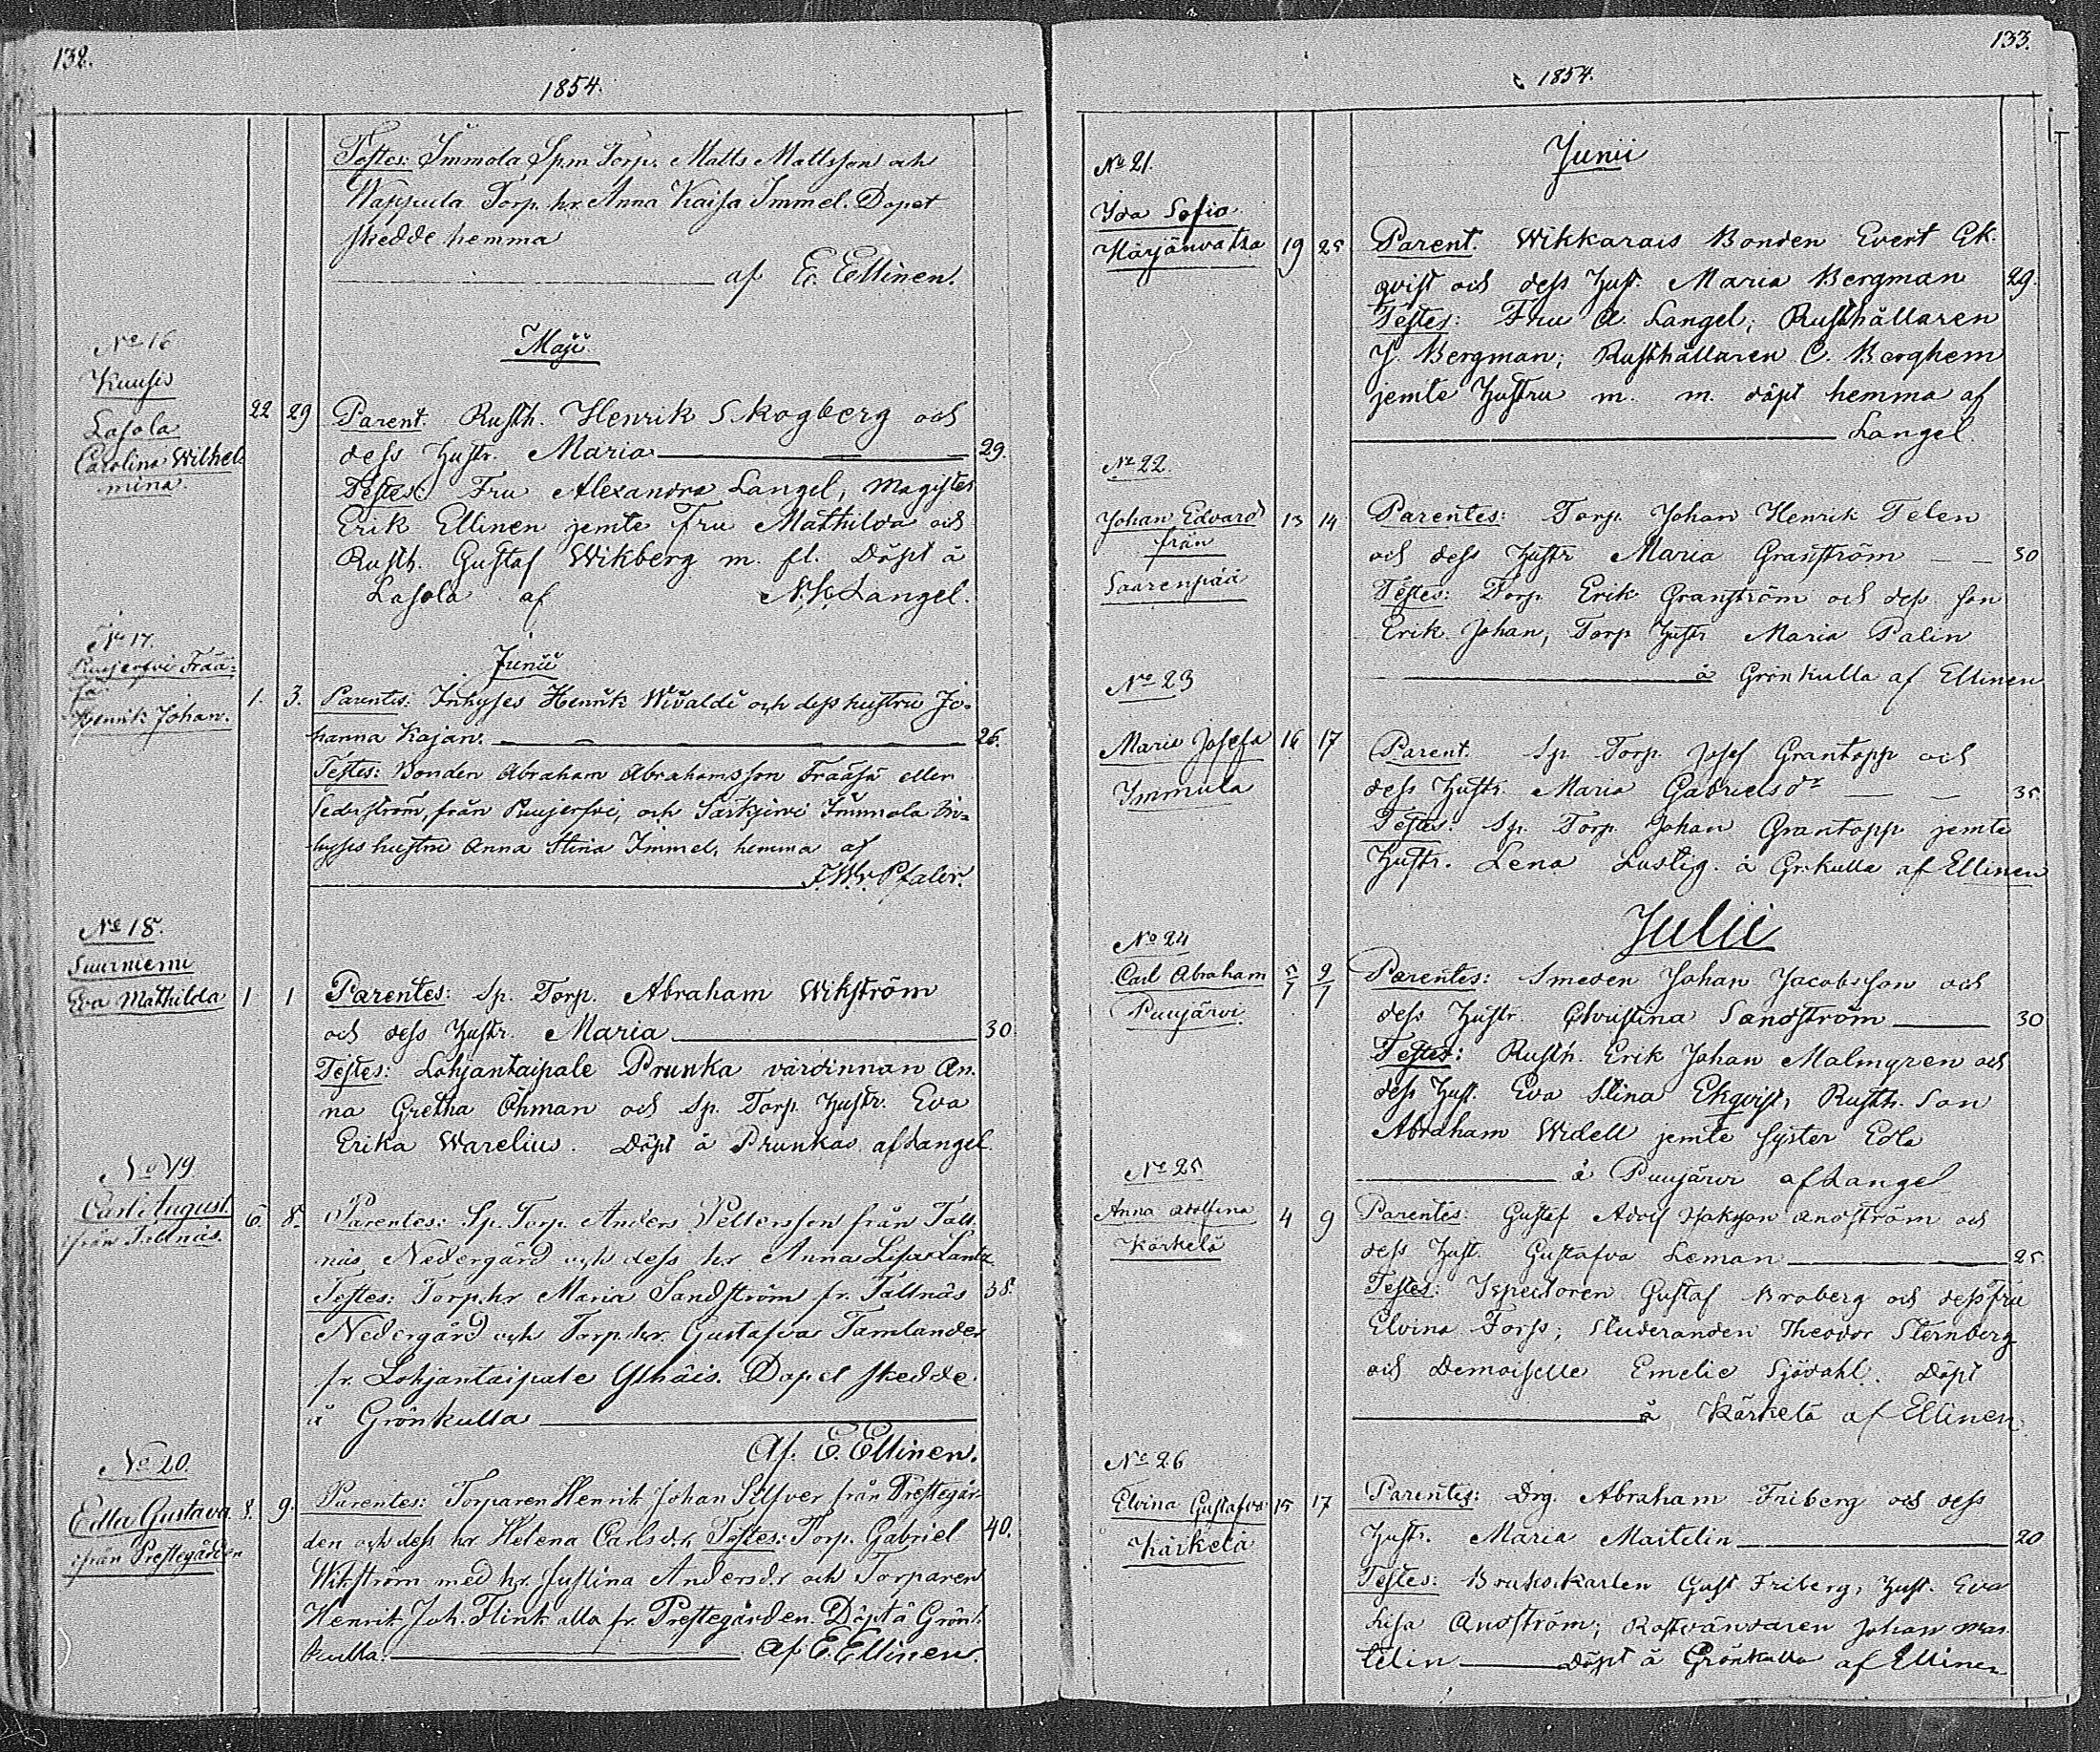 132.
1854.
Testes: Immola Spm Torp. Matts Mattsson och
Wappula Torp. hr Anna Kaisa Immel. Dopet
skedde hemma
af E. Ellinen.
Maji
No 16
Kuusis
Lasola
Carolina Wilhel
mina.
22 29 Parent. Rusth. Henrik Skogberg och
dess Hustr. Maria 29.
Testes: Fru Alexandra Langel, Magister
Erik Ellinen jemte Fru Mathilda och
Rusth. Gustaf Wikberg m. fl. Döpt å
Lasola af N. K. Langel.
Junii
No 17.
Puujerfvi Frää-
sä
Henrik Johan.
1. 3. Parentes: Inhyses Henrik Wivaldi och dess hustru Jo-
hanna Kajan. 26.
Testes: Bonden Abraham Abrahamsson Frääsä eller
Sederström, från Puujerfvi, och Särkjärvi Immola In-
hyses hustru Anna Stina Immel, hemma af
F.W.v. Pfaler.
No 18.
Suurniemi
Eva Mathilda 1 1 Parentes: Sp. Torp. Abraham Wikström
och dess Hustr. Maria 30.
Testes: Lohjantaipale Prunka värdinnan An.
na Gretha Öhman och Sp. Torp. Hustr. Eva
Erika Warelius. Döpt å Prunkas af Langel.
No 19
Carl August
ifrån Tallnäs.
6. 8. Parentes: Sp. Torp. Anders Pettersson från Tall.
näs Nedergård och dess hr Anna Lisa Lantz.
Testes: Torp.hr Maria Sandström fr. Tallnäs 38.
Nedergård och Torp.hr Gustafva Tamlander
fr. Lohjantaipale Ylhäis. Dopet skedde
å Grönkulla
Af. E. Ellinen.
No 20.
Edla Gustava
ifrån Prestegården
8. 9. Parentes: Torparen Henrik Johan Silfver från Prestegår-
den och dess hr Helena Carlsdr. Testes: Torp. Gabriel 40.
Wikström med hr. Justina Andersdr och Torparen
Henrik Joh. Flink alla fr. Prestegården. Döpt å Grön-
kulla. Af E. Ellinen.
133.
1854.
Junii
No 21.
Ida Sofia
Kärjänvatsa 19 25 Parent. Wikkarais Bonden Evert Ek.
qvist och dess Hust. Maria Bergman 29.
Testes: Fru A. Langel; Rusthållaren
J. Bergman; Rusthållaren C. Berghem
jemte Hustru m. m. döpt hemma af
Langel.
No 22.
Johan Edvard
från
Saarenpää
13 14 Parentes: Torp. Johan Henrik Telen
och dess Hustr Maria Granström 30
Testes: Torp. Erik Granström och dess son
Erik Johan, Torp Hustr Maria Palin
å Grönkulla af Ellinen
No 23
Maria Josefa 16 17
Immula
Parent. Sp. Torp. Josef Grantopp och
dess Hustr. Maria Gabrielsdr 35.
Testes: Sp. Torp. Johan Grantopp jemte
Hustr. Lena Lustig. å Gr.kulla af Ellinen
Julii
No 24
Carl Abraham 5/7 9/7
Puujärvi
Parentes: Smeden Johan Jacobsson och
dess Hustr. Christina Sandström 30
Testes: Rusth. Erik Johan Malmgren och
dess Hust. Eva Stina Ekqvist, Rusth. Son
Abraham Widell jemte syster Edla
å Puujärvi af Langel
No 25
Anna Adolfina 4 9
Kärkelä
Parentes: Gustaf Adolf Andström och
dess Hust. Gustafva Leman 25.
Testes: Ispectoren Gustaf Broberg och dess fru
Elvina Forss; Studeranden Theodor Sternberg
och Demoiselle Emelie Sjödahl. Döpt
å Kärkelä af Ellinen.
No 26
Elvina Gustafva 15 17
Kärkelä
Parentes: Drg. Abraham Friberg och dess
Hustr. Maria Martelin 20
Testes: Brukskarlen Gust. Friberg, Hust. Eva
Lisa Andström; Rostvändaren Johan Mar.
telin Döpt å Grönkulla af Ellinen